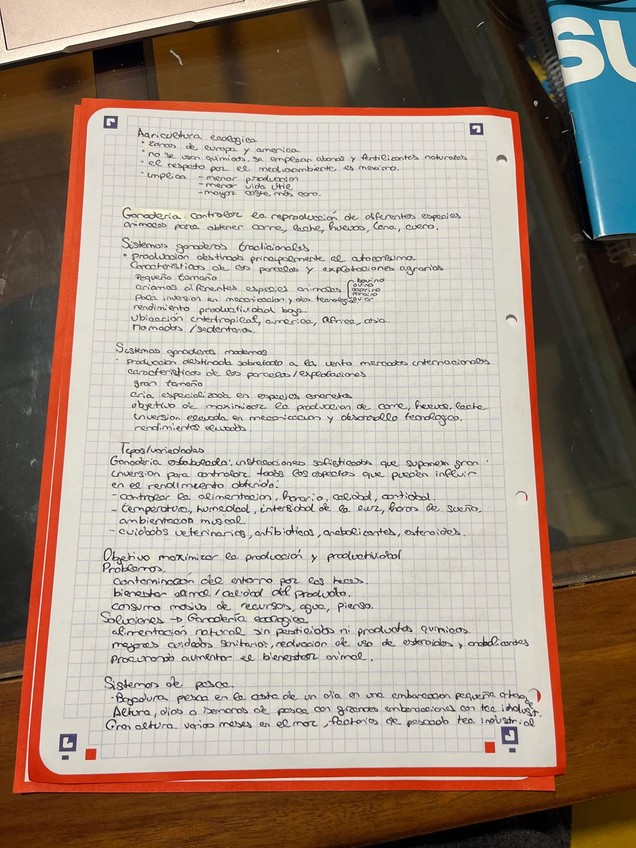 SU
Agricultura ecologica
· zonas de europa y america
· no se usan quimicos, se emplean abonos y fertilizantes naturales
· el respeto por el medioambiente es maximo.
· implica - menor produccion
- menor vida util
- mayor coste mas caro.
Ganaderia: controlar la reproducción de diferentes especies
animales para obtener carne, leche, huevos, lana, cuero.
Sistemas ganaderos tradicionales
· produccion destinada principalmente al autoconsumo.
Caracteristicas de las parcelas y explotaciones agrarias
Pequeño tamaño
criamos diferentes especies animales
bovino
ovino
caprino
porcino
poca inversion en mecanizacion y des tecnologico
rendimiento productividad baja.
ubicacion intertropical, america, Africa, asia
Nomadas / sedentaria.
Sistemas ganaderos modernos
· produccion destinada sobretodo a la venta mercados internacionales
caracteristicas de las parcelas / explotaciones
gran tamaño
cria especializada en especies concretas
objetivo de maximizar la produccion de carne, huevos, leche
inversion elevada en mecanizacion y desarrollo tecnologico.
rendimientos elevados
Tipos/variedades
Ganaderia estabulada: instalaciones sofisticadas que suponen gran
inversion para controlar todos los aspectos que pueden influir
en el rendimiento obtenido:
- controlar la alimentacion, horario, calidad, cantidad.
- temperatura, humedad, intensidad de la luz, horas de sueño,
ambientacion musical
- cuidados veterinarios, antibioticos, anabolizantes, esteroides.
Objetivo maximizar la producción y productividad
Problemas.
contaminación del entorno por las heces.
bienestar animal / calidad del producto.
consumo masivo de recursos, agua, pienso.
Soluciones → Ganadería ecologica
alimentación natural sin pesticidas ni productos quimicos.
mayores cuidados sanitarios, reduccion de uso de esteroides y anabolizantes
procurando aumentar el bienestar animal.
Sistemas de pesca.
· Bajadura pesca en la costa de un dia en una embarcacion pequeña artesa
Altura, dias o semanas de pesca con grandes embarcaciones con tec industr.
Gran altura varios meses en el mar, factorias de pescado tec industrial